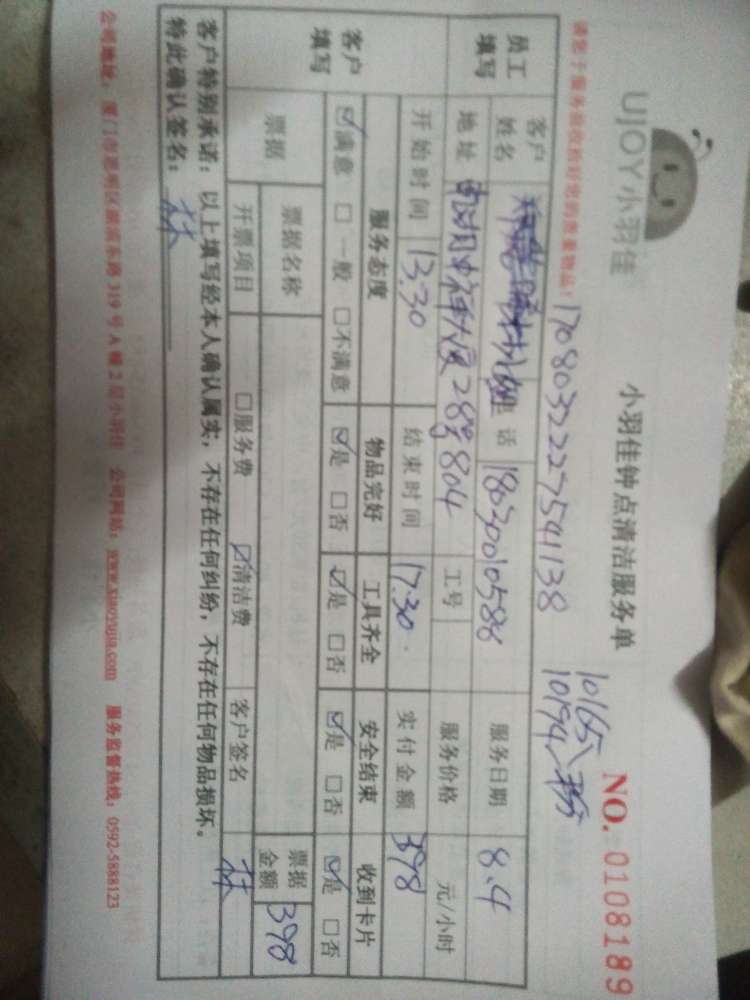 UJOY小羽佳
小羽佳钟点清洁服务单
NO. 0108189
请您于服务前收拾好您的贵重物品!
17080322227541138
10165
10194
员工填写
客户姓名 小姐 电话 18030010588 服务日期 8.4
地址 大厦28号804 工号 服务价格 元/小时
开始时间 13:30 结束时间 17:30. 实付金额 398
客户填写
服务态度 物品完好 工具齐全 安全结束 收到卡片
☑满意 □一般 □不满意 ☑是 □否 ☑是 □否 ☑是 □否 ☑是 □否
票据 票据名称 票据金额 398
开票项目 □服务费 ☑清洁费 客户签名 林
客户特别承诺:以上填写经本人确认属实,不存在任何纠纷,不存在任何物品损坏。
特此确认签名: 林
公司地址:厦门市思明区湖滨东路319号A幢2层小羽佳 公司网站:www.xiaoyujia.com 服务监督热线:0592-5888123